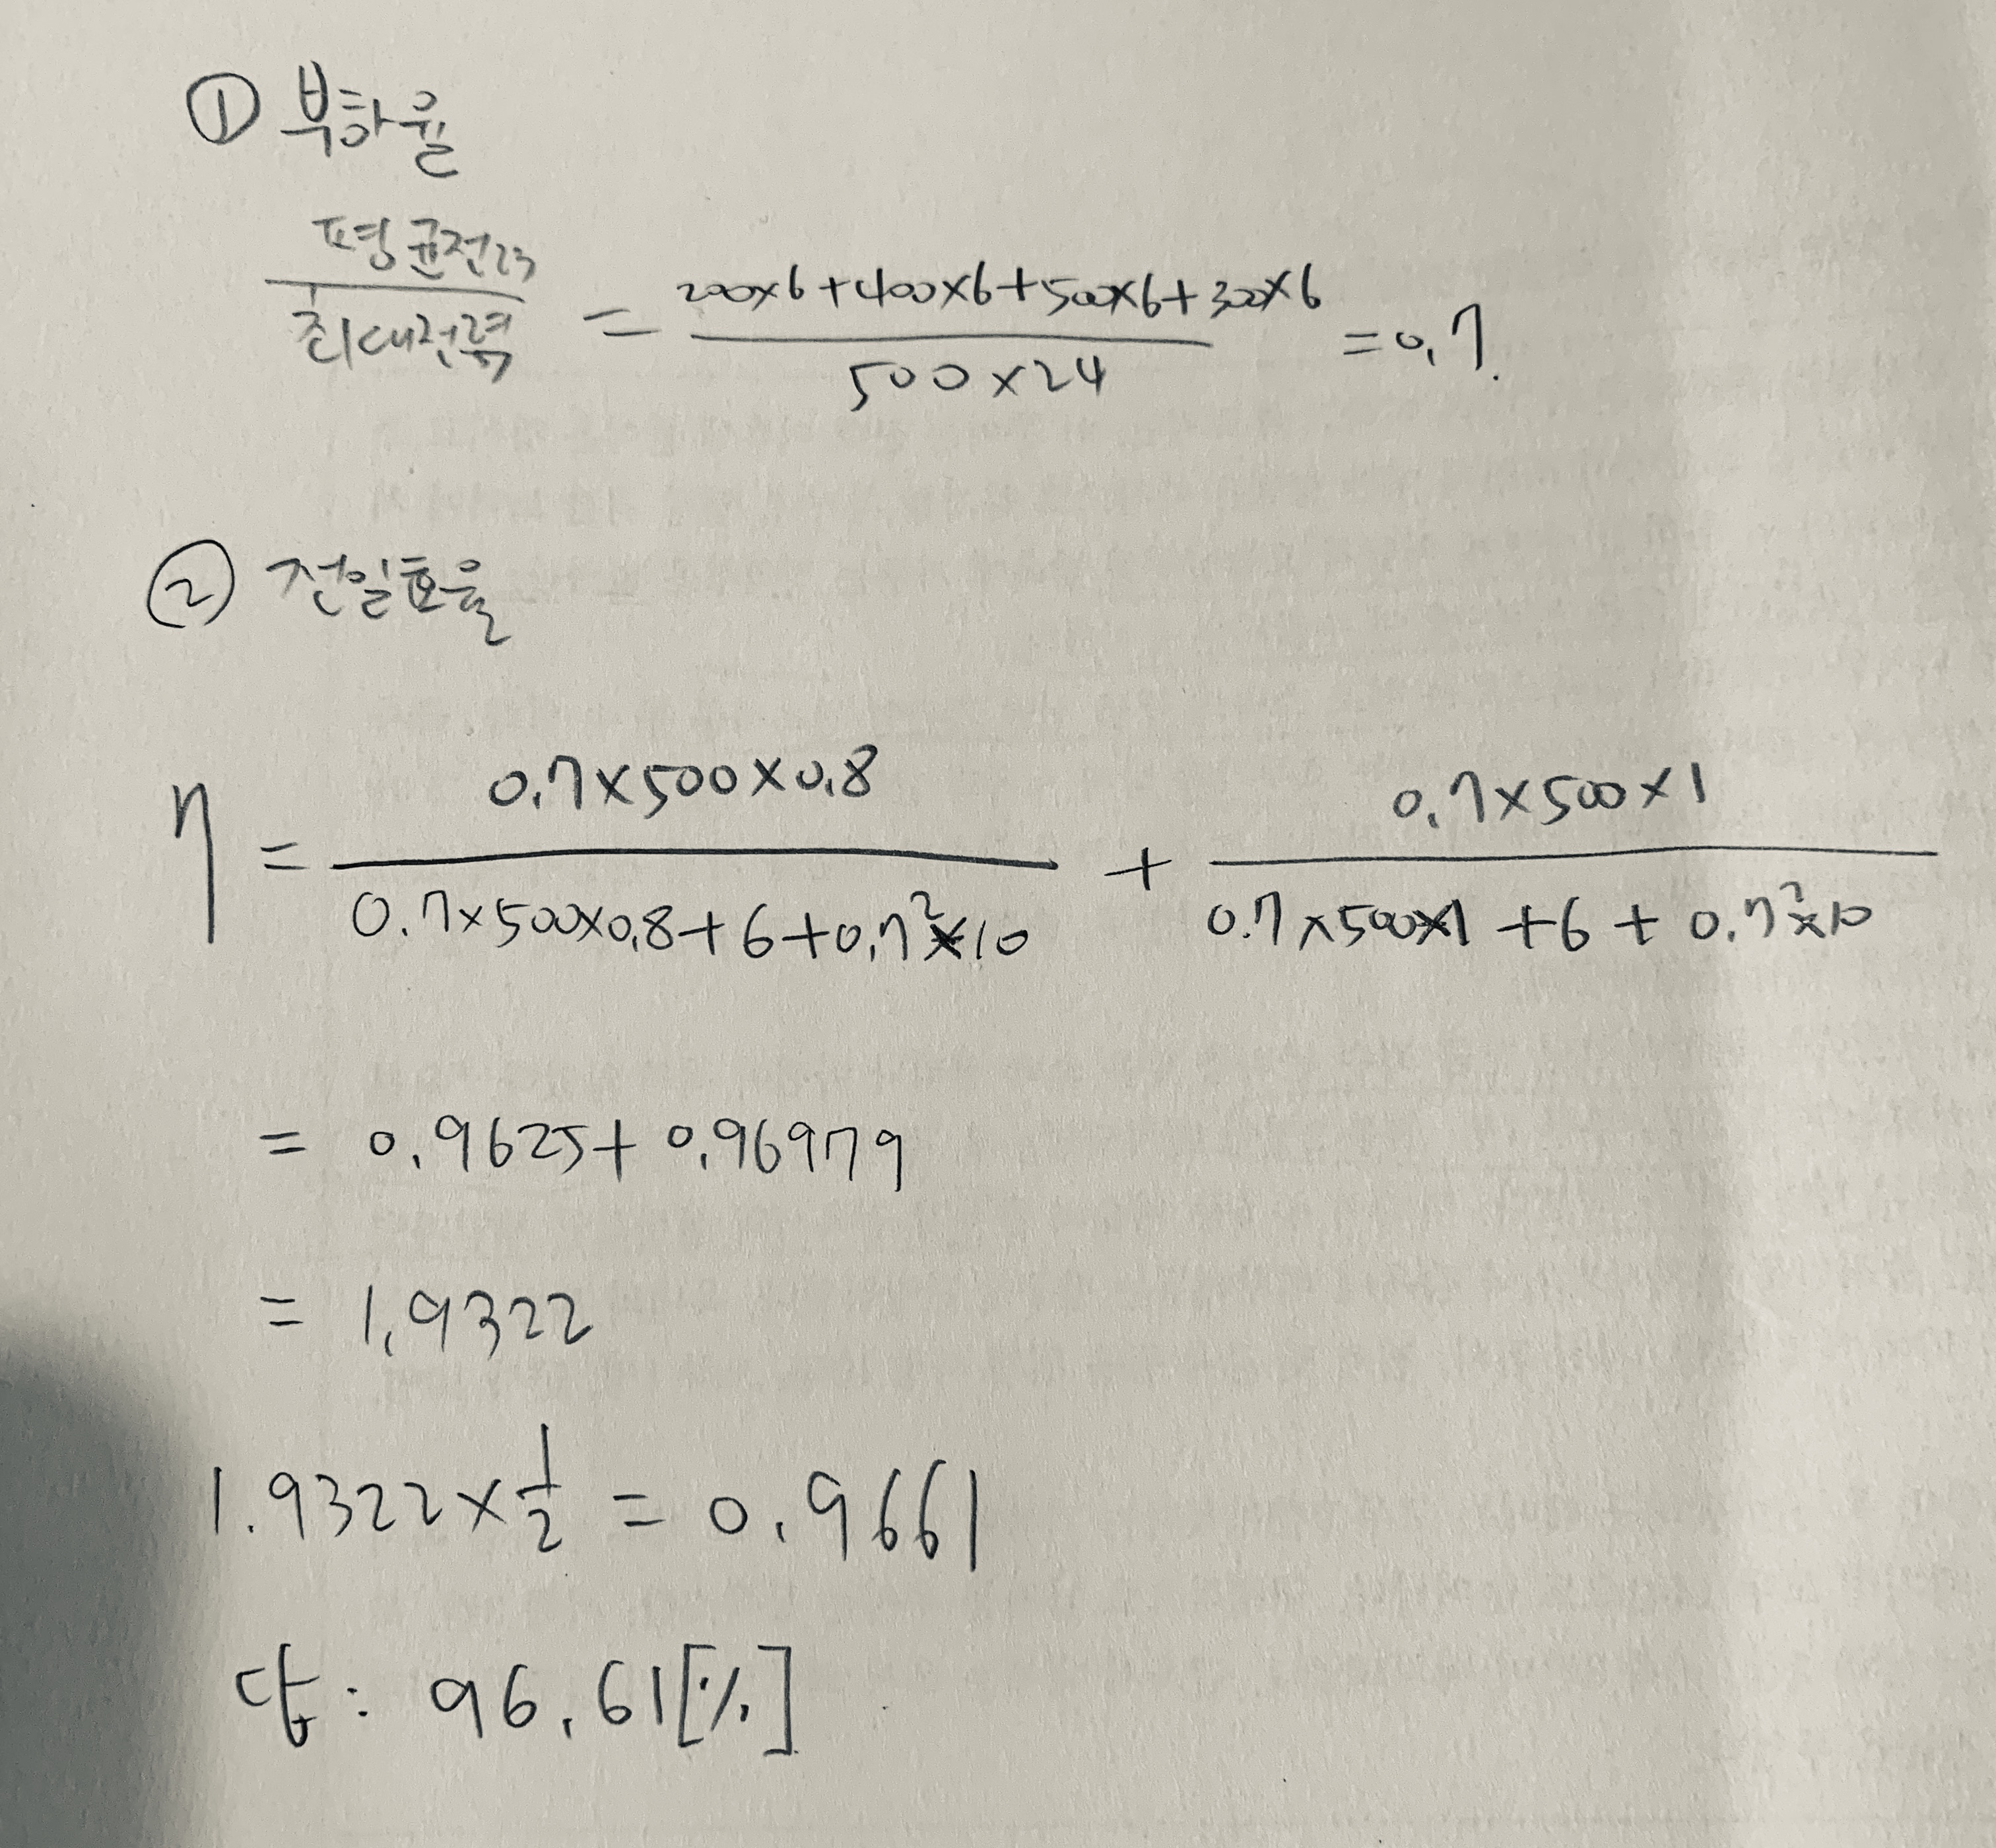 ① 부하율
평균전력
최대전력
= 200×6+400×6+500×6+300×6 / 500×24 = 0.7.
② 전일효율
η = 0.7×500×0.8 / 0.7×500×0.8+6+0.7²×10 + 0.7×500×1 / 0.7×500×1+6+0.7²×10
= 0.9625+0.96979
= 1.9322
1.9322×1/2 = 0.9661
답: 96.61[%]